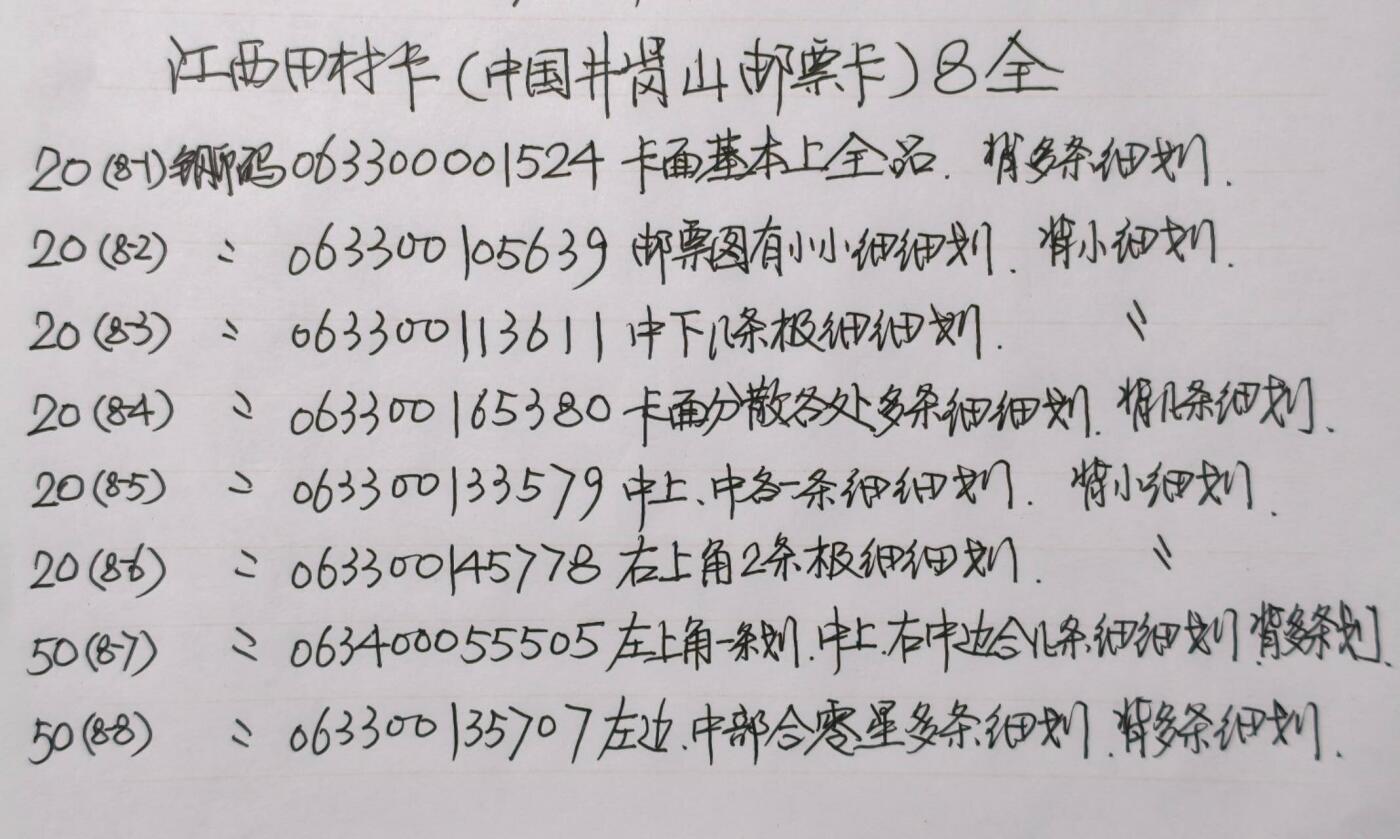 江西田村卡(中国井岗山邮票卡)8全
20(8-1)钢印码063300001524卡面基本上全品.背多条细划.
20(8-2) 〃 063300105639邮票图有小小细细划.背小细划.
20(8-3) 〃 063300113611中下几条极细细划. 〃
20(8-4) 〃 063300165380卡面分散各处多条细细划.背几条细划.
20(8-5) 〃 063300133579中上、中各一条细细划.背小细划.
20(8-6) 〃 063300145778右上角2条极细细划. 〃
50(8-7) 〃 063400055505左上角一条划.中上.右中边合几条细细划.背多条划.
50(8-8) 〃 063300135707左边.中部合零星多条细划.背多条细划.